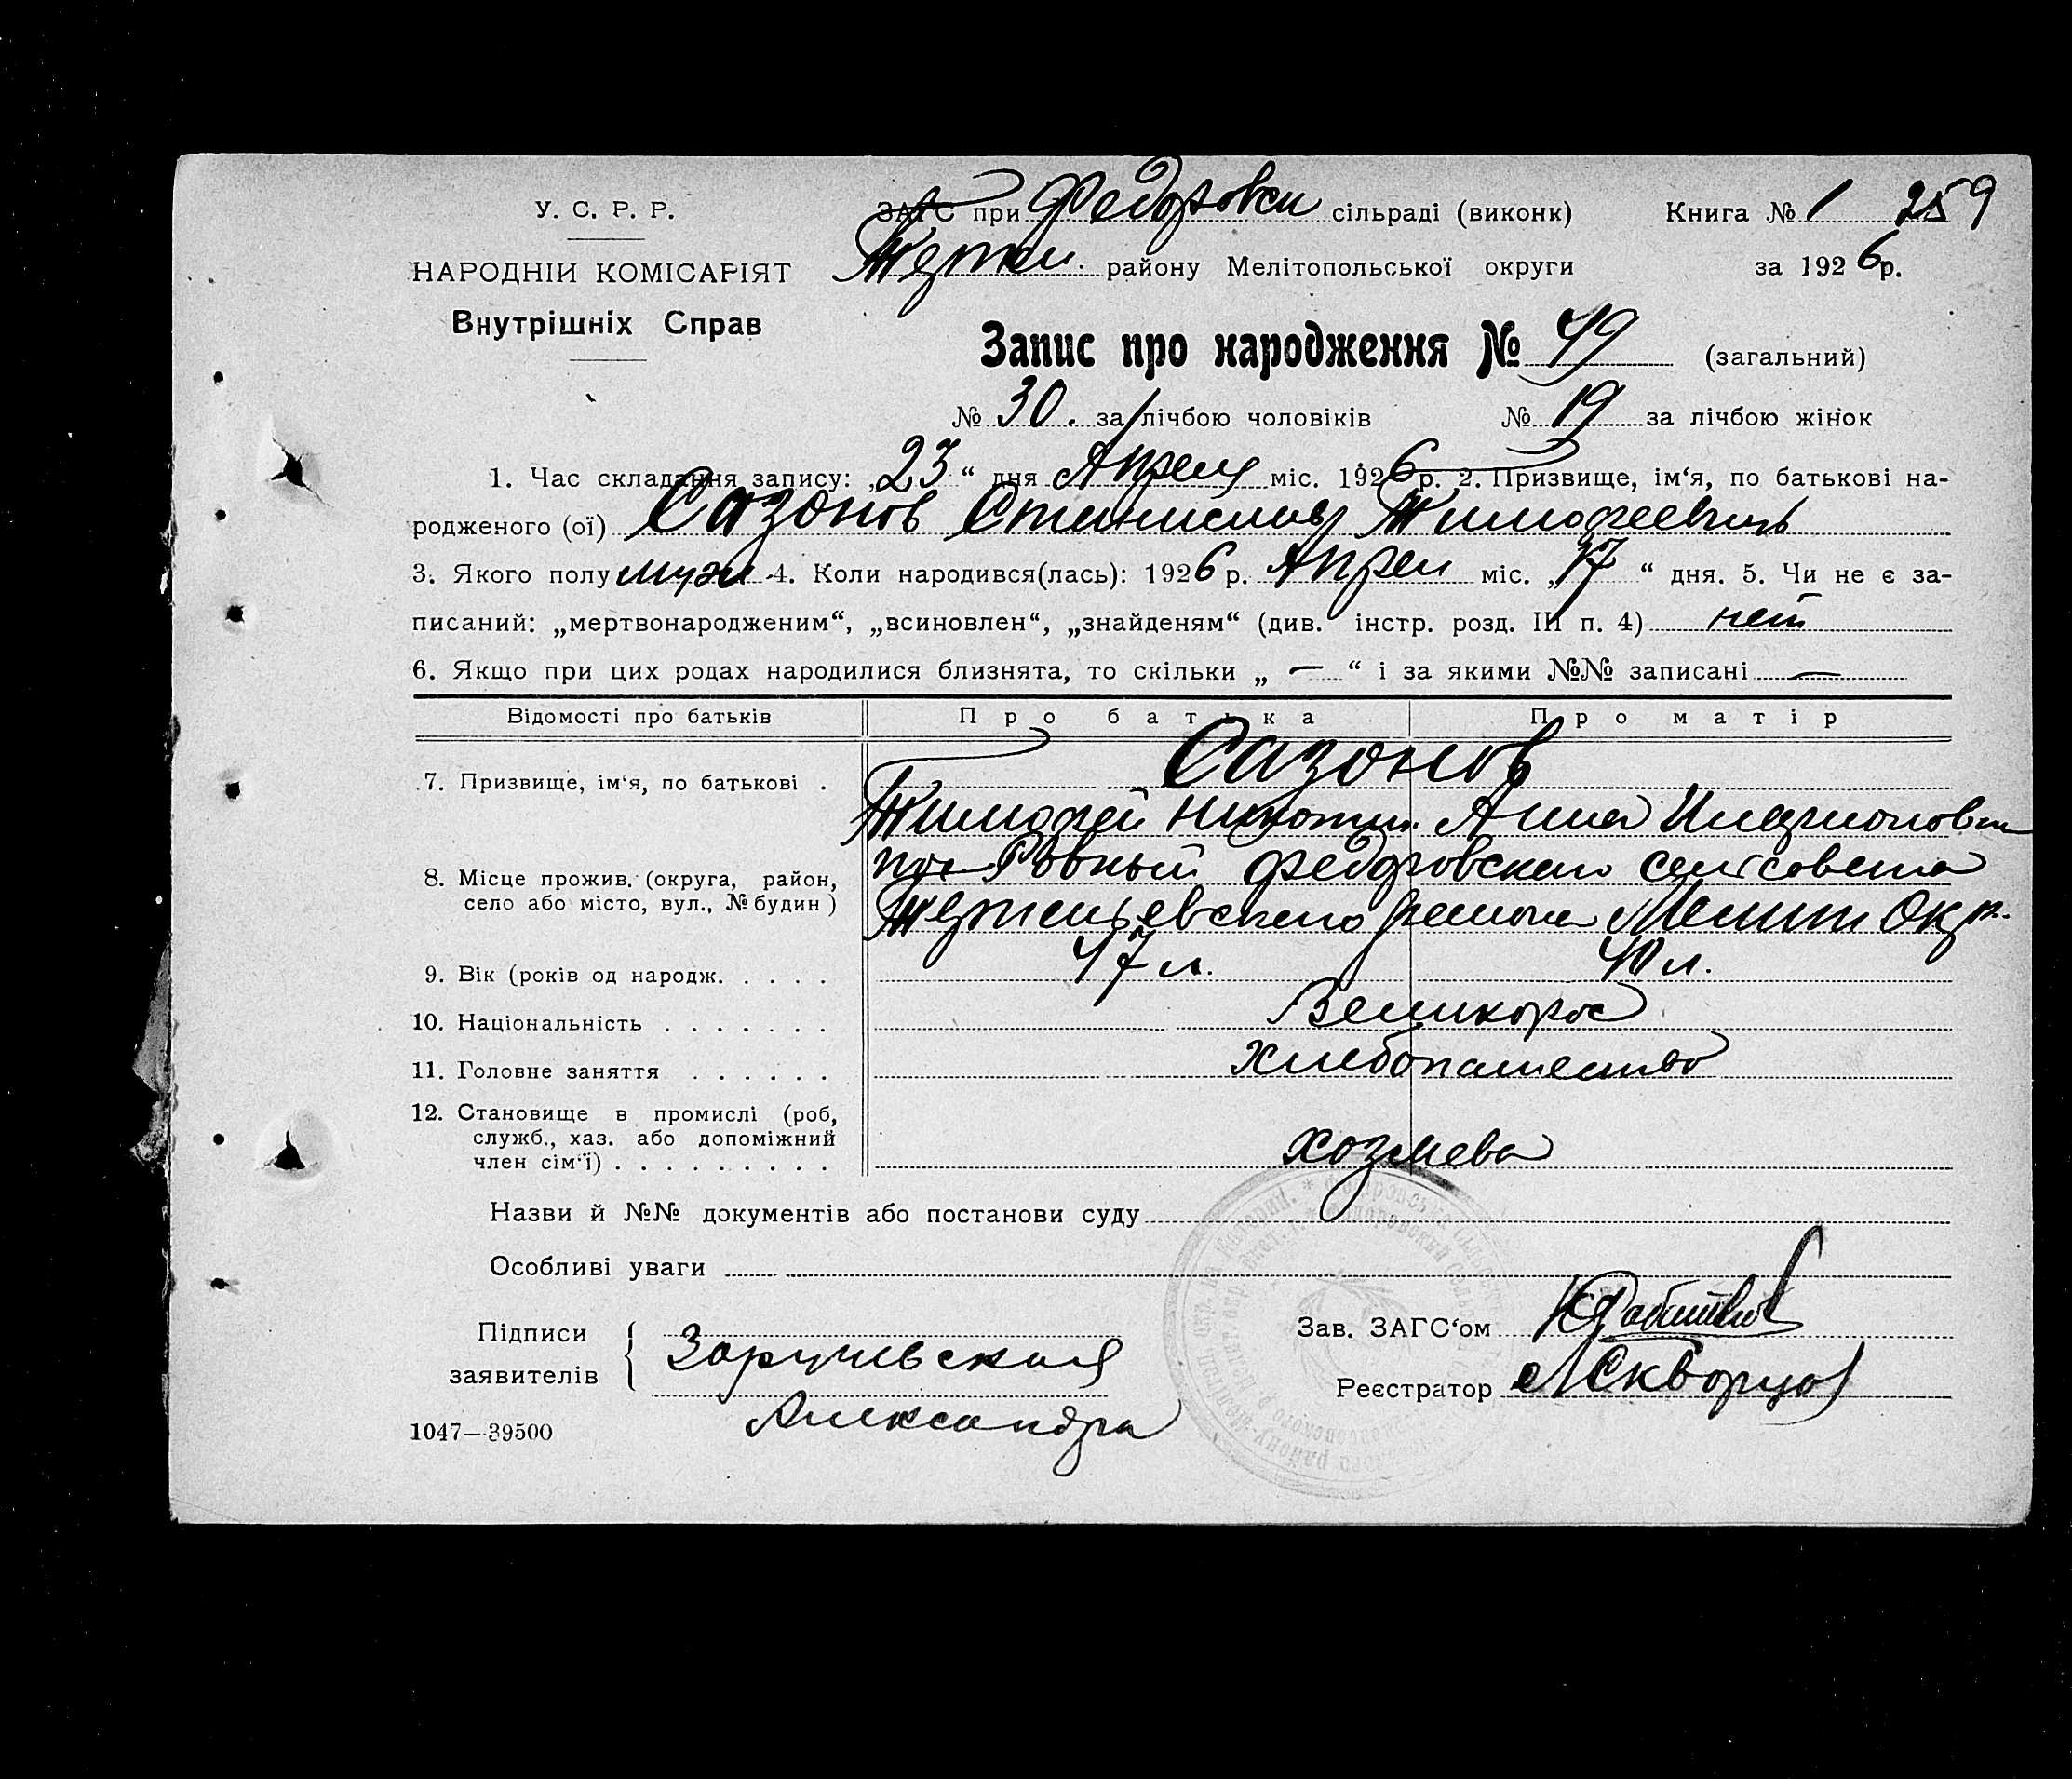 У. С. Р. Р.
НАРОДНІЙ КОМІСАРІЯТ
Внутрішніх Справ
ЗАГС при Федоровск сільраді (виконк) Книга № 1 259
району Мелітопольської округи за 1926 р.
Запис про народження № 49 (загальний)
№ 30. за лічбою чоловіків № 19 за лічбою жінок
1. Час складання запису: „23“ дня Апреля міс. 1926 р. 2. Призвище, ім‘я, по батькові на-
родженого (ої) Сазонов Станислав Тимофеевичь
3. Якого полу муж 4. Коли народився(лась): 1926 р. Апрел міс. „17“ дня. 5. Чи не є за-
писаний: „мертвонародженим“, „всиновлен“, „знайденям“ (див. інстр. розд. III п. 4) нет
6. Якщо при цих родах народилися близнята, то скільки „ — “ і за якими №№ записані —
Відомості про батьків Про батька Про матір
7. Призвище, ім‘я, по батькові . Сазонов
Тимофей Никит. Анна Иларионовн
8. Місце прожив. (округа, район, село або місто, вул., № будин) пос Ровный Федоровскаго сельсовета
района Мелит Окр.
9. Вік (років од народж. . . . . 47 л. 40 л.
10. Національність . . . . . . . Великорос
11. Головне заняття . . . . . . Хлебопашество
12. Становище в промислі (роб,
служб., хаз. або допоміжний
член сім‘ї) . . . . . . . . .
Назви й №№ документів або постанови суду
Особливі уваги
Підписи заявителів
Александра
Зав. ЗАГС‘ом
Реєстратор Скворцов
1047—39500